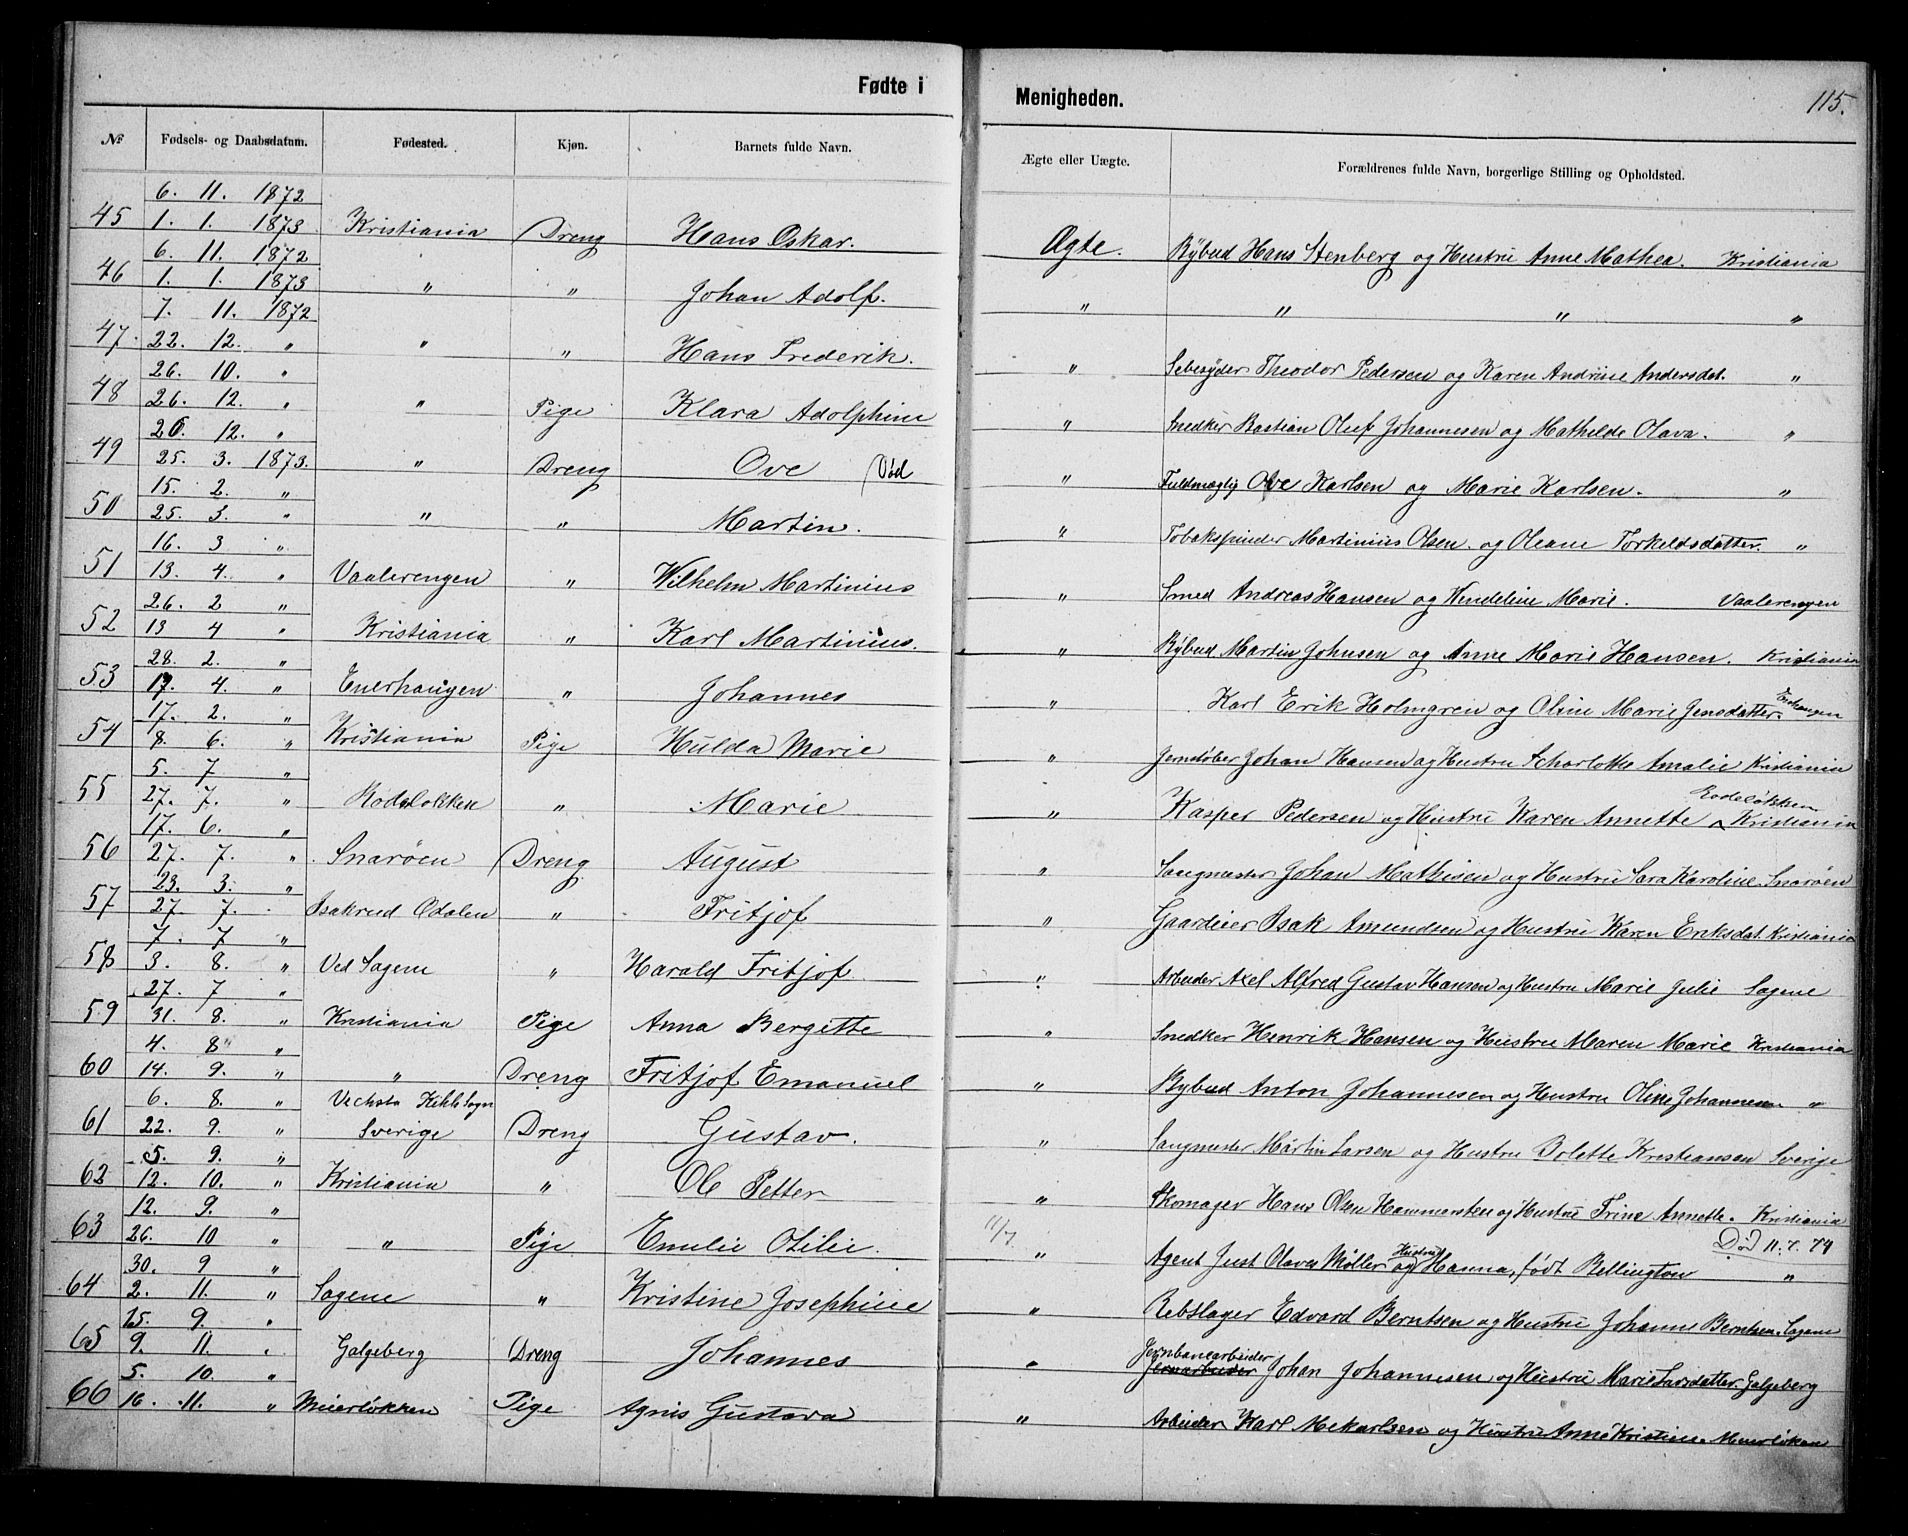 Fødte i Menigheden. 115.
№ Fødsels- og Daabsdatum. Fødested. Kjøn. Barnets fulde Navn. Ægte eller Uægte. Forældrenes fulde Navn, borgerlige Stilling og Opholdsted.
6. 11. 1872
45 1. 1. 1873 Kristiania Dreng Hans Oskar. Ægte. Bybud Hans Stenberg og Hustru Anne Mathea. Kristiania
6. 11. 1872
46 1. 1. 1873 " " Johan Adolf. " " " "
7. 11. 1872
47 22. 12. " " " Hans Frederik. " Sebesyder Theodor Pedersen og Karen Andrine Andersdat. "
26. 10. "
48 26. 12. " " Pige Klara Adolphine " Snedker Bastian Oluf Johannesen og Mathilde Olava. "
26. 12. "
49 25. 3. 1873. " Dreng Ove (Død " Fuldmægtig Ove Karlsen og Marie Karlsen. "
15. 2. "
50 25. 3. " " " Martin. " Tobakspinder Martinius Olsen. og Oleane Torkeldsdatter. "
16. 3 "
51 13. 4. " Vaalerengen " Wilhelm Martinius " Smed Andreas Hansen og Vendeline Marie. Vaalerengen
26. 2 "
52 13 4 " Kristiania " Karl Martinius. " Bybud Martin Johnsen og Anne Marie Hansen. Kristiania
28. 2. "
53 17. 4. " Enerhaugen " Johannes " Karl Erik Holmgren og Oline Marie Jensdatter. Enerhaugen
17. 2. "
54 8. 6. " Kristiania Pige Hulda Marie " Jernstøber Johan Hansen og Hustru Scharlotte Amalie Kristiania
5. 7 "
55 27. 7. " Rødeløkken " Marie " Kasper Pedersen og Hustru Karen Annette Rodeløkken Kristiania
17. 6. "
56 27. 7. " Snarøen Dreng August " Sangmester Johan Mathisen og Hustru Sara Karoline. Snarøen
23. 3. "
57 27. 7. " Isakrud Odalen " Fritjof " Gaardeier Isak Amundsen og Hustru Karen Eriksdat. Kristiania
7. 7 "
58 3. 8. " Ved Sagene " Harald Fritjof " Arbeider Axel Alfred Gustav Hansen og Hustru Marie Julie Sagene
27. 7 "
59 31. 8. " Kristiania Pige Anna Bergitte " Snedker Henrik Hansen og Hustru Maren Marie Kristiania
4. 8 "
60 14. 9. " " Dreng Fritjof Emanuel " Bybud Anton Johannesen og Hustru Oline Johannesen. "
6. 8. " Vechsta Kihls Sogn
61 22. 9. " Sverige Dreng Gustav. " Sangmester Martin Larsen og Hustru Bolette Kristiansen Sverige
5. 9. "
62 12. 10. " Kristiania " Ole Petter " Skomager Hans Olsen Hammersten og Hustru Trine Annette. Kristiania
12. 9. " 11/7 Død 11. 7. 74
63 26. 10 " " Pige Emilie Otilie. " Agent Just Olaves Møller og Hustru Hanna, født Rellington "
30. 9 "
64 2. 11. " Sagene " Kristine Josephine " Rebslager Edvard Berntsen og Hustru Johanne Berntsen. Sagene
15. 9. " Jernbanearbeider
65 9. 11. " Galgeberg Dreng Johannes " Jernarbeider Johan Johannesen og Hustru Marie Larsdatter. Galgeberg
5. 10. "
66 16. 11. " Meierløkken Pige Agnis Gustava " Arbeider Karl Mekarlsen og Hustru Anne Kristine. Meierløkken